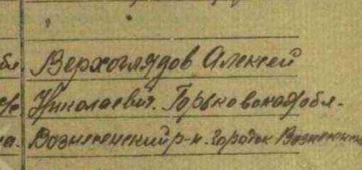 бл Верхоглядов Алексей
Николаевич. Горьковская обл.
на. Вознесенский р-н. городок Вознесенск